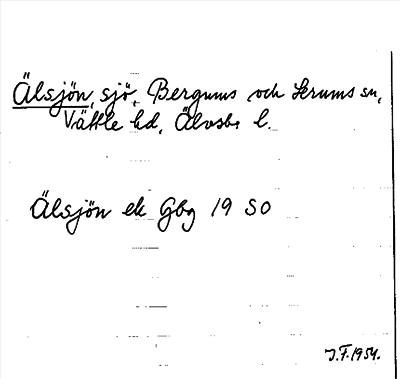 Älsjön, sjö, Bergums och Lerums sn,
Vättle hd, Älvsbs l.
Älsjön ek Gbg 19 SO
J.F. 1954.